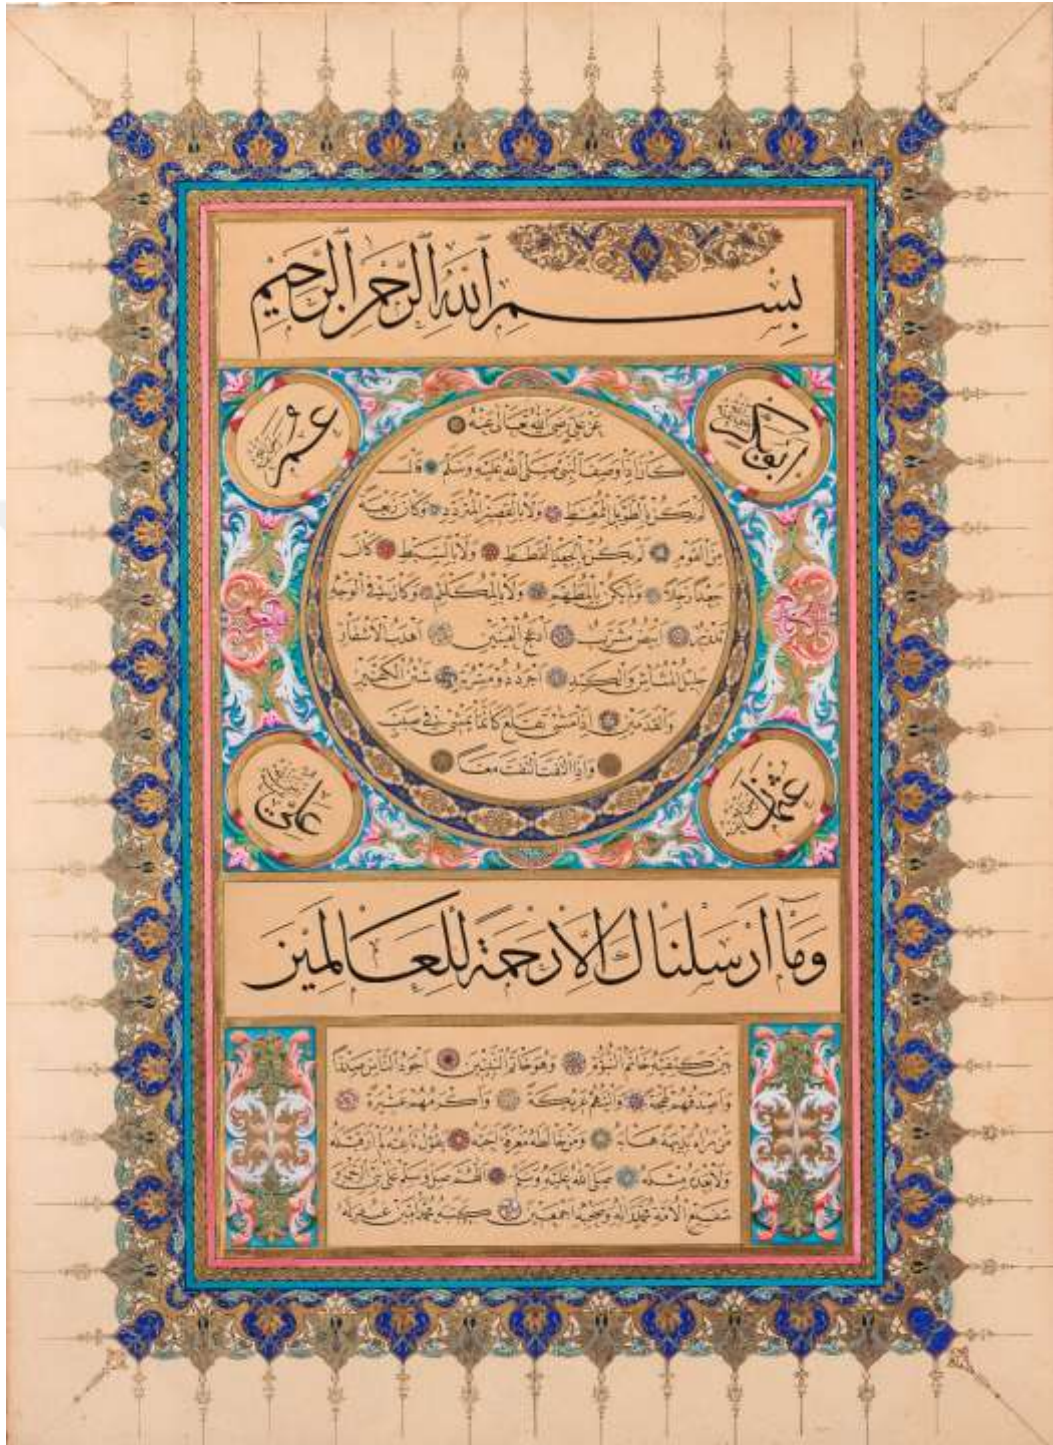 بِسْمِ اللهِ الرَّحْمٰنِ الرَّحِيمِ
ابوبكر
عُمَر
عَنْ عَلِيٍّ رَضِيَ اللهُ تَعَالٰى عَنْهُ
كَانَ اِذَا وَصَفَ النَّبِيَّ صَلَّى اللهُ عَلَيْهِ وَسَلَّمَ قَالَ
لَمْ يَكُنْ بِالطَّوِيلِ الْمُمَّغِطِ وَلَا بِالْقَصِيرِ الْمُتَرَدِّدِ وَكَانَ رَبْعَةً
مِنَ الْقَوْمِ لَمْ يَكُنْ بِالْجَعْدِ الْقَطَطِ وَلَا بِالسَّبِطِ كَانَ
جَعْدًا رَجِلًا وَلَمْ يَكُنْ بِالْمُطَهَّمِ وَلَا بِالْمُكَلْثَمِ وَكَانَ فِي الْوَجْهِ
تَدْوِيرٌ اَبْيَضُ مُشْرَبٌ اَدْعَجُ الْعَيْنَيْنِ اَهْدَبُ الْاَشْفَارِ
جَلِيلُ الْمُشَاشِ وَالْكَتَدِ اَجْرَدُ ذُو مَسْرُبَةٍ شَثْنُ الْكَفَّيْنِ
وَالْقَدَمَيْنِ اِذَا مَشٰى تَقَلَّعَ كَاَنَّمَا يَمْشِي فِي صَبَبٍ
وَاِذَا الْتَفَتَ الْتَفَتَ مَعًا
عثمان
علي
وَمَا اَرْسَلْنَاكَ اِلَّا رَحْمَةً لِلْعَالَمِينَ
بَيْنَ كَتِفَيْهِ خَاتَمُ النُّبُوَّةِ وَهُوَ خَاتَمُ النَّبِيِّينَ اَجْوَدُ النَّاسِ صَدْرًا
وَاَصْدَقُهُمْ لَهْجَةً وَاَلْيَنُهُمْ عَرِيكَةً وَاَكْرَمُهُمْ عِشْرَةً
مَنْ رَاٰهُ بَدِيهَةً هَابَهُ وَمَنْ خَالَطَهُ مَعْرِفَةً اَحَبَّهُ يَقُولُ نَاعِتُهُ لَمْ اَرَ قَبْلَهُ
وَلَا بَعْدَهُ مِثْلَهُ صَلَّى اللهُ عَلَيْهِ وَسَلَّمَ اَللّٰهُمَّ صَلِّ وَسَلِّمْ عَلٰى نَبِيِّ الرَّحْمَةِ
شَفِيعِ الْاُمَّةِ مُحَمَّدٍ وَاٰلِهِ وَصَحْبِهِ اَجْمَعِينَ كَتَبَهُ مُحَمَّد اَمِين غُفِرَ لَهُ